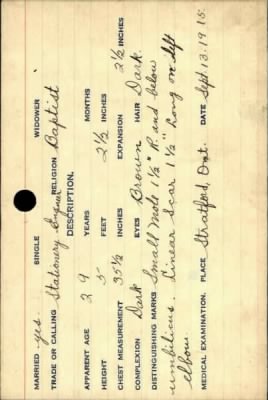 MARRIED yes SINGLE WIDOWER
TRADE OR CALLING Stationery Engineer RELIGION Baptist
DESCRIPTION.
APPARENT AGE 39 YEARS MONTHS
HEIGHT 5 FEET 2½ INCHES
CHEST MEASUREMENT 35½ INCHES EXPANSION 2½ INCHES
COMPLEXION Dark EYES Brown HAIR Dark.
DISTINGUISHING MARKS Small Mole 1½" R. and below
umbilicus. Linear Scar 1½" long on left
elbow.
MEDICAL EXAMINATION. PLACE Stratford, Ont. DATE Sept. 13. 1915.